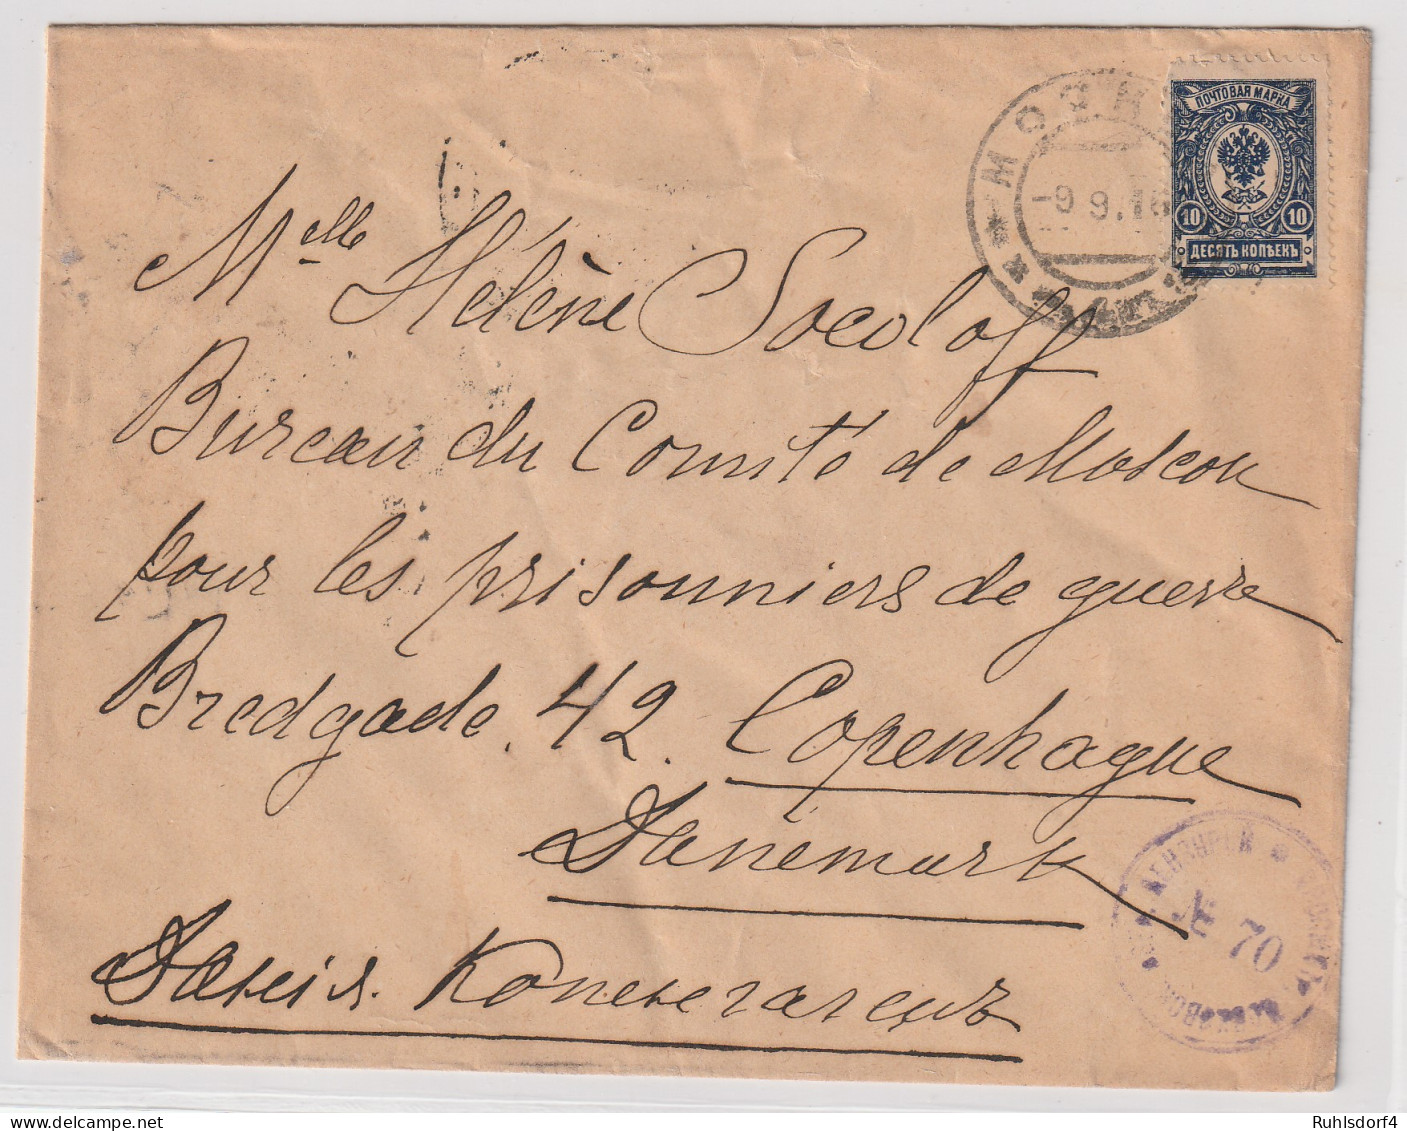 МОСКВ
-9 9.16
ПОЧТОВАЯ МАРКА
10 10
ДЕСЯТЬ КОПѢЕКЪ
Melle Hélène Socoloff
Bureau du Comité de Moscou
pour les prisonniers de guerre
Bredgade. 42. Copenhague
Danemark
Данія. Копенгагенъ
№ 70
Ruhlsdorf4